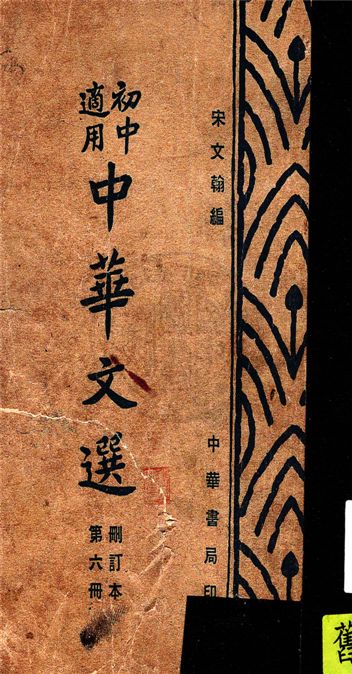 宋文翰編
中華書局印
初中
適用
中華文選
刪訂本
第六冊
舊